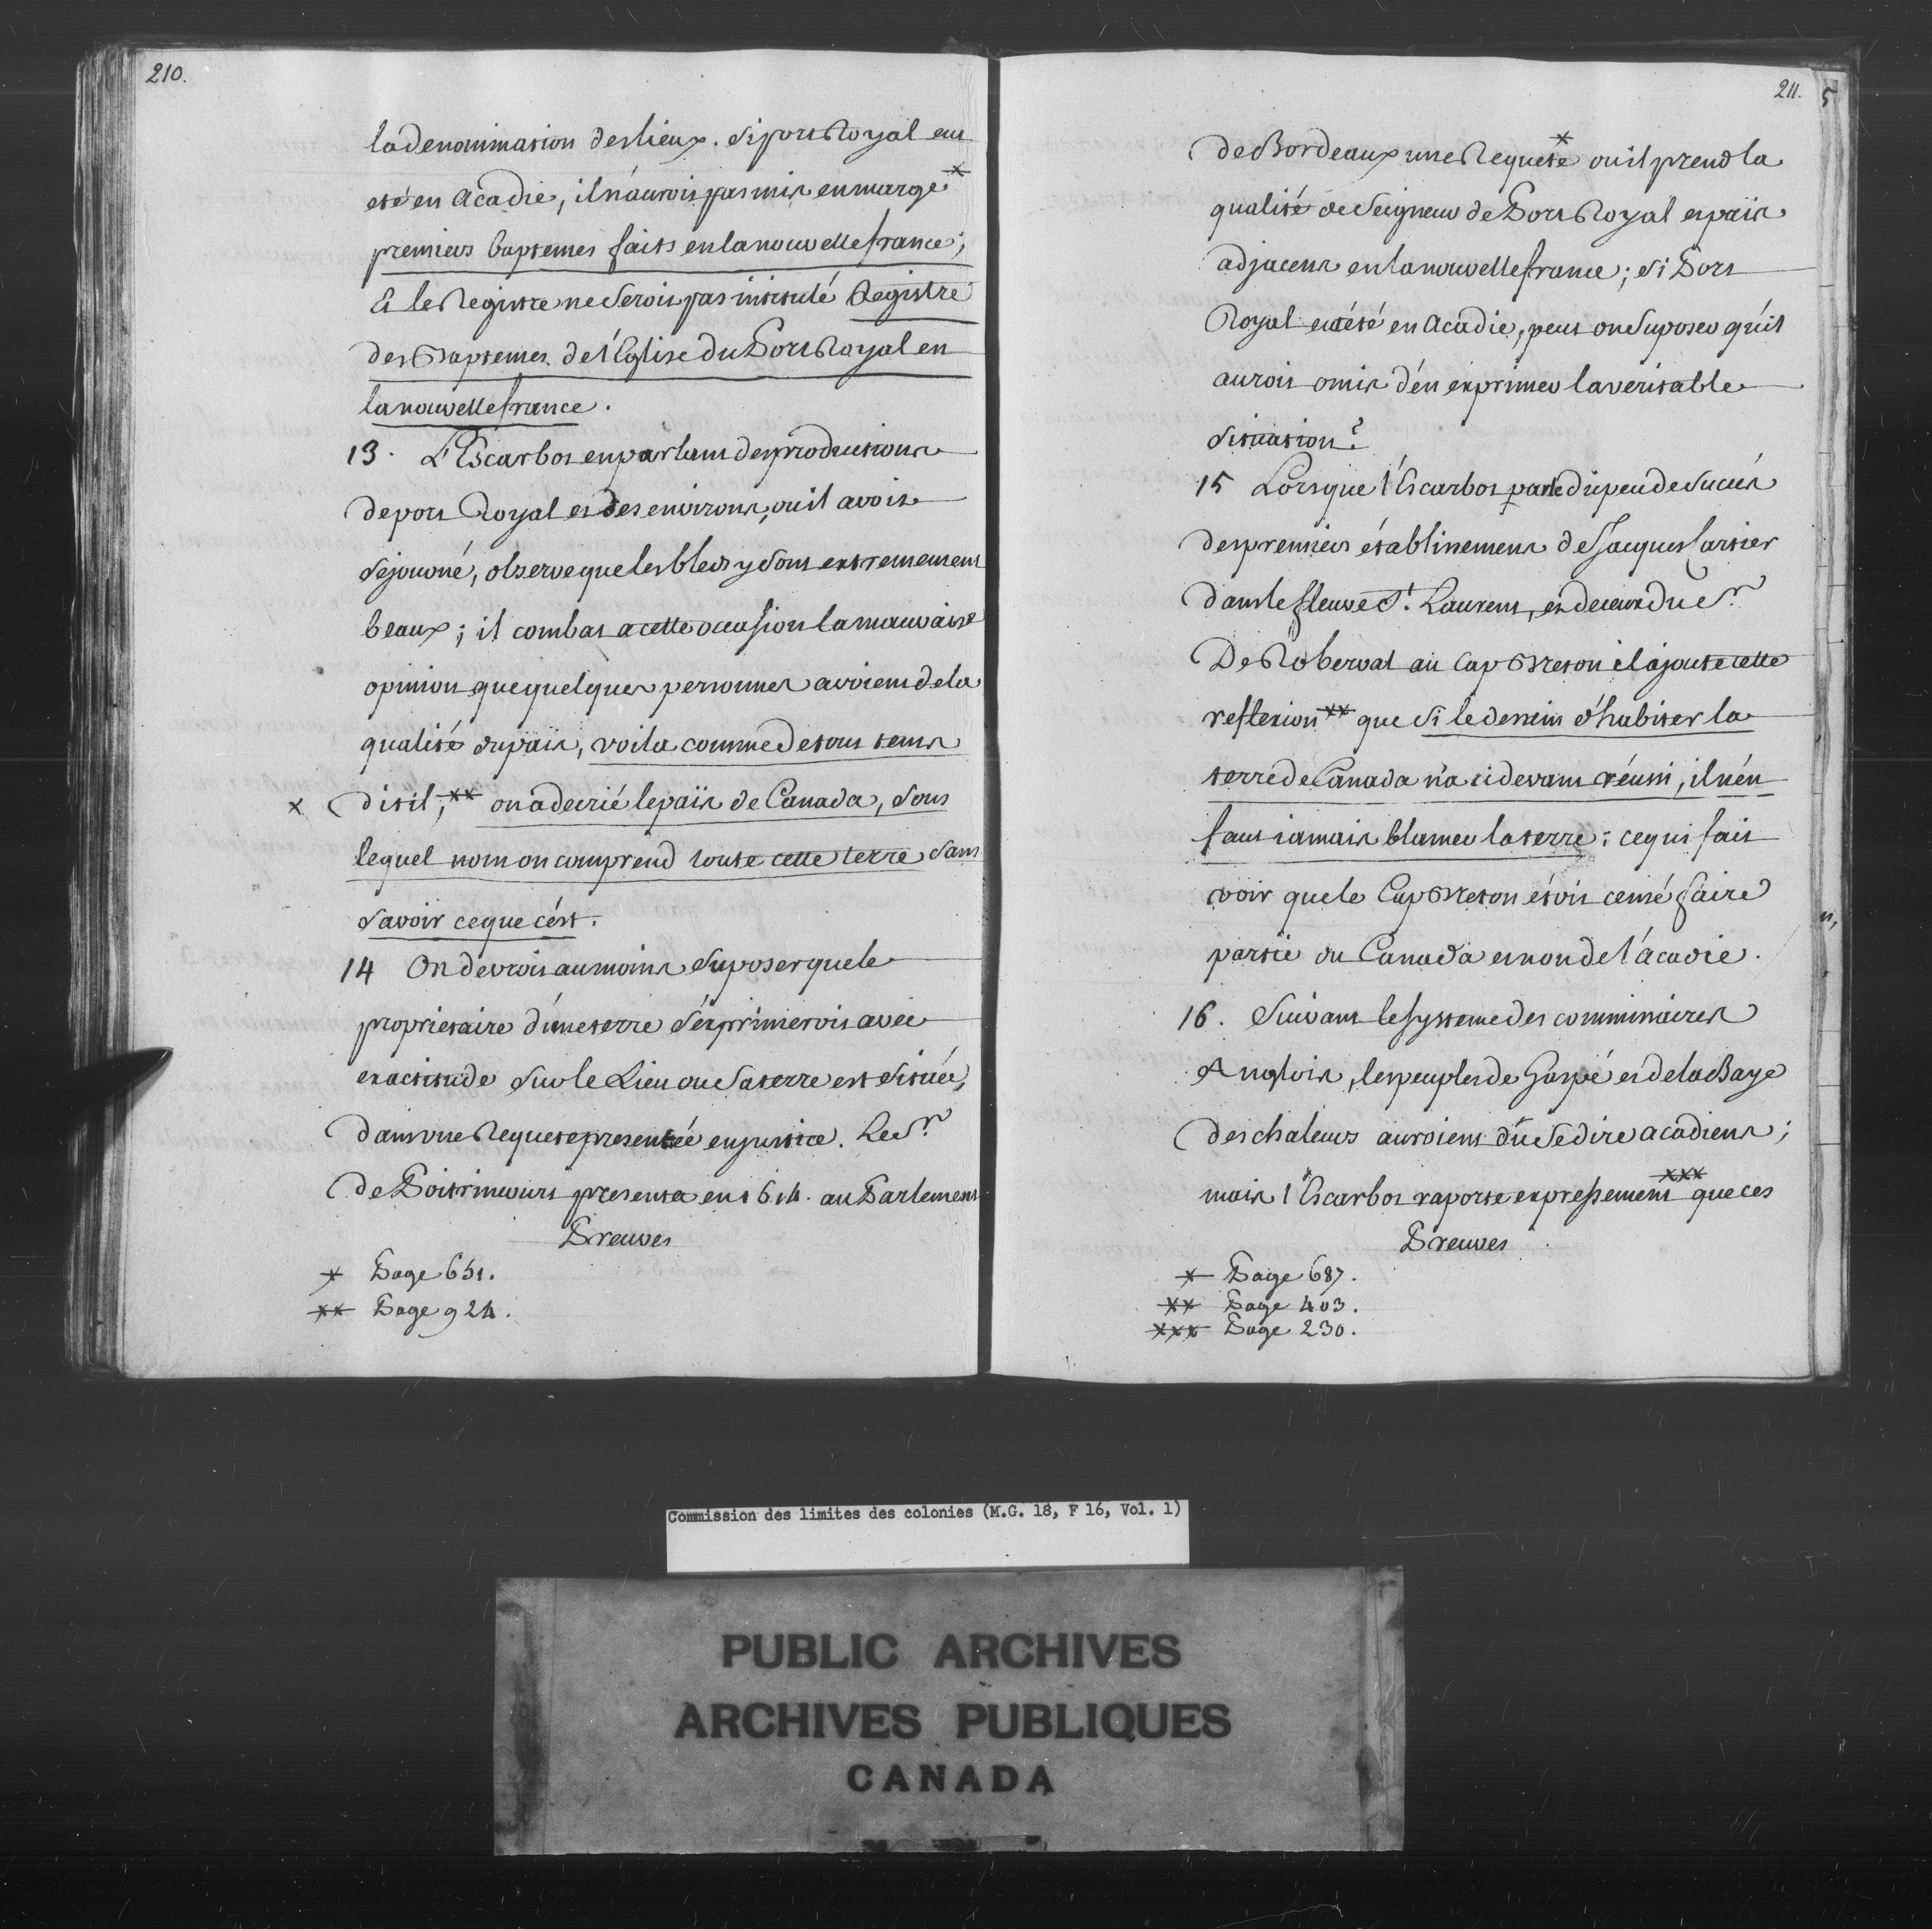 210.
la denomination des lieux. Si port Royal eut
eté en Acadie, il n'auroit pas mis en marge *
premiers baptemes faits en la nouvelle france;
Et le Registre ne seroit pas intitulé Registre
des Baptemes de l'Eglise du Port Royal en
la nouvelle france.
13. L'Escarbot en parlant des productions
de port Royal et des environs, ou il avoit
sejourné, observe que les bleds y sont extremement
beaux; il combat a cette occasion la mauvaise
opinion que quelques personnes avoient de la
qualité du païs, voila comme de tout tems
x dit il, ** on a decrié le païs de Canada, sous
lequel nom on comprend toute cette terre sans
savoir ce que c'ést.
14 On devroit au moins suposer que le
proprietaire d'une terre s'éxprimeroit avec
exactitude sur le Lieu ou sa terre est située,
dans une Requete presentée en justice. Le Sr.
De Poitrincourt presenta en 1614. au Parlement
Preuves
* Page 651.
** Page 924.
211.
5
de Bordeaux une Requete * ou il prend la
qualité de Seigneur de Port Royal et païs
adjacens en la nouvelle france; si Port
Royal eut été en Acadie, peut on suposer qu'il
auroit omis d'én exprimer la veritable
situation?
15 Lorsque l'Escarbot parle du peu de succés
des premiers établissemens de Jacques Cartier
dans le fleuve St. Laurent, et de ceux du Sr.
De Roberval au Cap Breton il ajoute cette
reflexion ** que si le dessein d'habiter la
terre de Canada n'a ci devant réussi, il n'én
faut iamais blamer la terre: ce qui fait
voir que le Cap Breton étoit censé faire
partie du Canada et non de l'Acadie.
16. Suivant le systeme des commissaires
Anglois, les peuples de Gaspé et de la Baye
des chaleurs auroient dû se dire acadiens;
mais l'Escarbot raporte expressement *** que ces
Preuves
* Page 687.
** Page 403.
*** Page 230.
Commission des limites des colonies (M.G. 18, F 16, Vol. 1)
PUBLIC ARCHIVES
ARCHIVES PUBLIQUES
CANADA